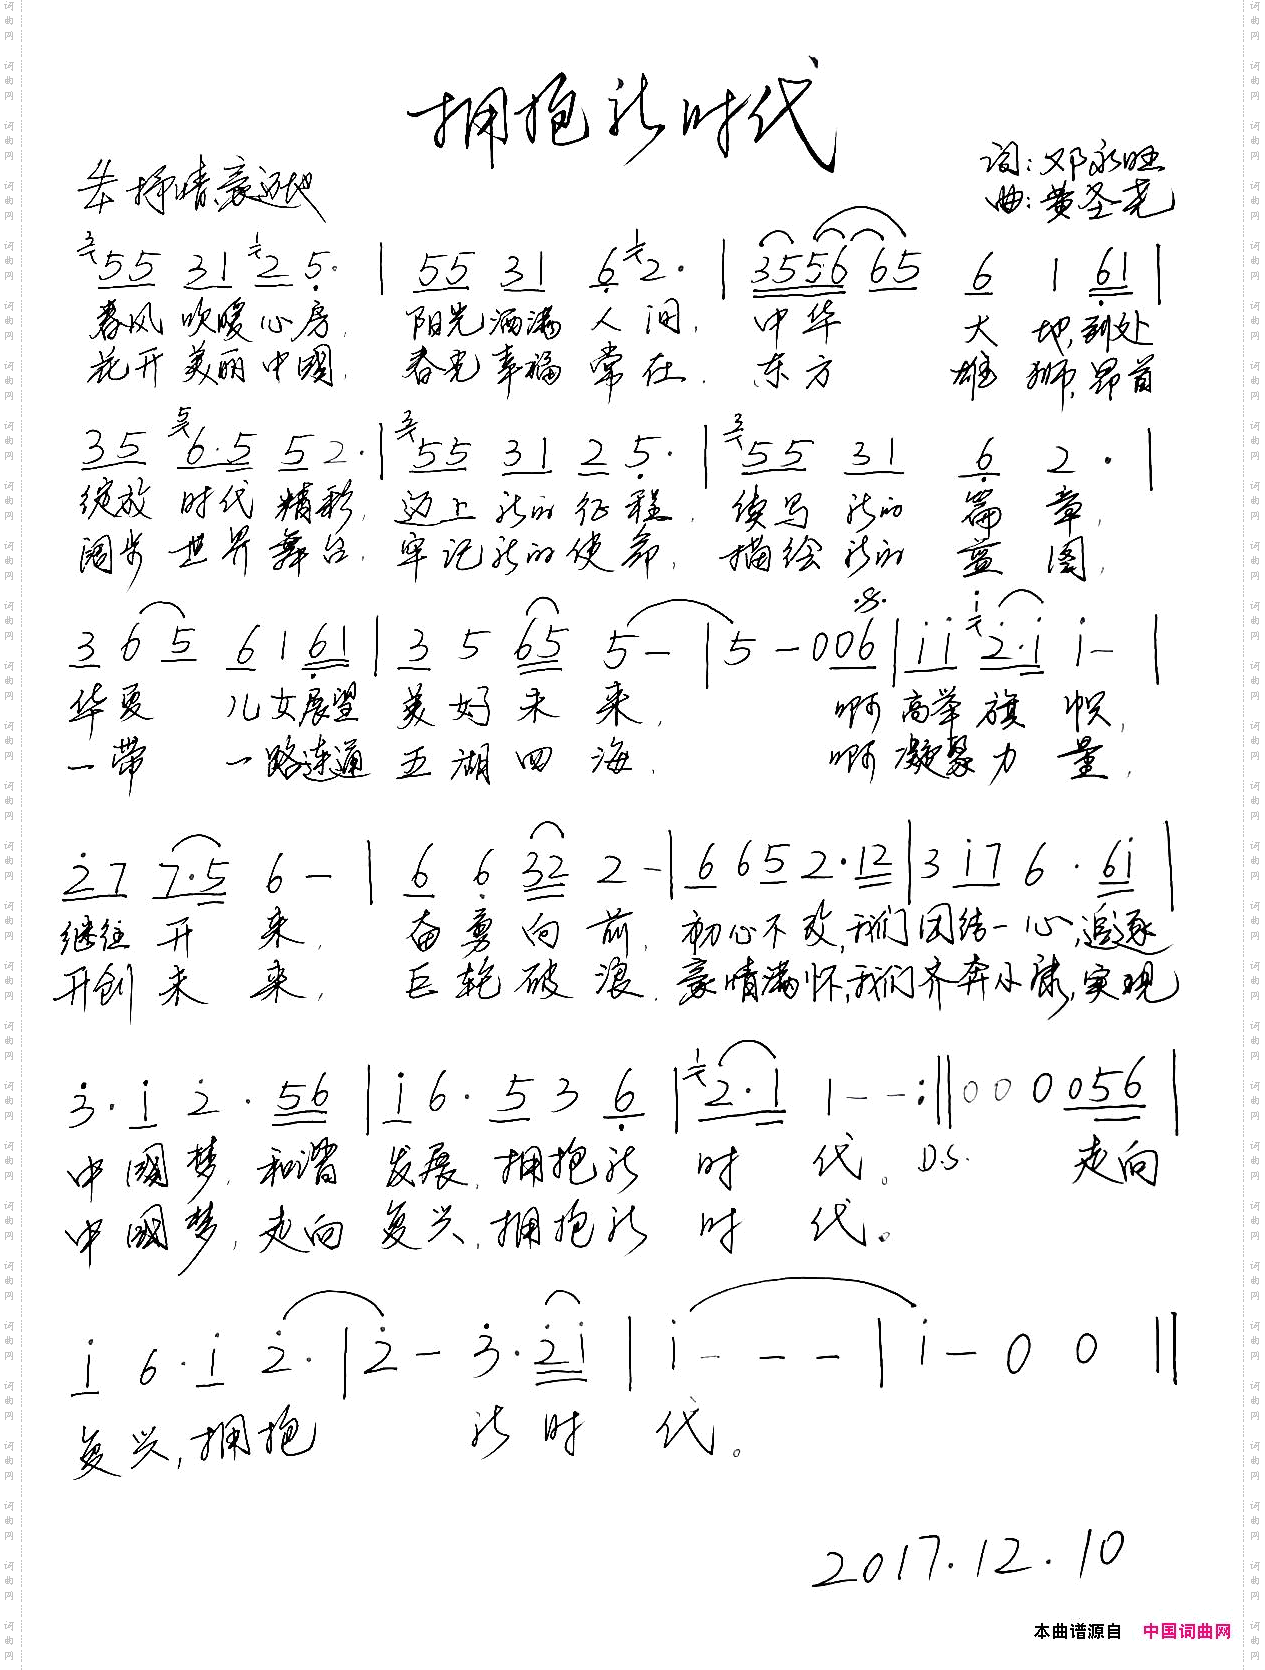 拥抱新时代
抒情豪迈地
词:邓永旺
曲:黄圣尧
55 31 2 5· | 55 31 6 2· | 3556 65 6 1 61 |
春风吹暖心房, 阳光洒满人间, 中华大地,到处
花开美丽中國, 春光幸福常在, 东方雄狮,昂首
35 6·5 5 2· | 55 31 2 5· | 55 31 6 2· |
绽放时代精彩, 迈上新的征程, 续写新的篇章,
阔步世界舞台, 牢记新的使命, 描绘新的蓝图,
3 6 5 6 1 61 | 3 5 65 5 – | 5 – 006 | i i 2·i i – |
华夏儿女展望美好未来, 啊高举旗帜,
一带一路连通五湖四海, 啊凝聚力量,
27 7·5 6 – | 6 6 32 2 – | 6 65 2·12 | 3 i7 6 · 6i |
继往开来, 奋勇向前, 初心不改,我们团结一心,追逐
开创未来, 巨轮破浪, 豪情满怀,我们齐奔小康,实现
3·i 2·56 | i 6·5 3 6 | 2·i 1 – – :‖ 0 0 0 056 |
中國梦,和谐发展,拥抱新时代。 D.S. 走向
中國梦,走向复兴,拥抱新时代。
i 6·i 2· | 2 – 3·2i | i – – – | i – 0 0 ‖
复兴,拥抱新时代。
2017.12.10
本曲谱源自 中国词曲网